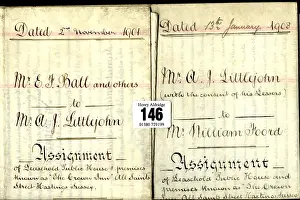 Dated 2nd November 1901
Mr. E. J. Ball and others
to
Mr. A. J. Littlejohn
Assignment
of Leasehold Public House & premises
known as "The Crown Inn" All Saints
Street Hastings Sussex.
Henry Aldridge
146
01380 729199
Dated 13th January 1903
Mr. A. J. Littlejohn
with the consent of his Lessors
to
Mr. William Ford
Assignment
of Leasehold Public House and
premises known as "The Crown
Inn" All Saints Street Hastings Sussex